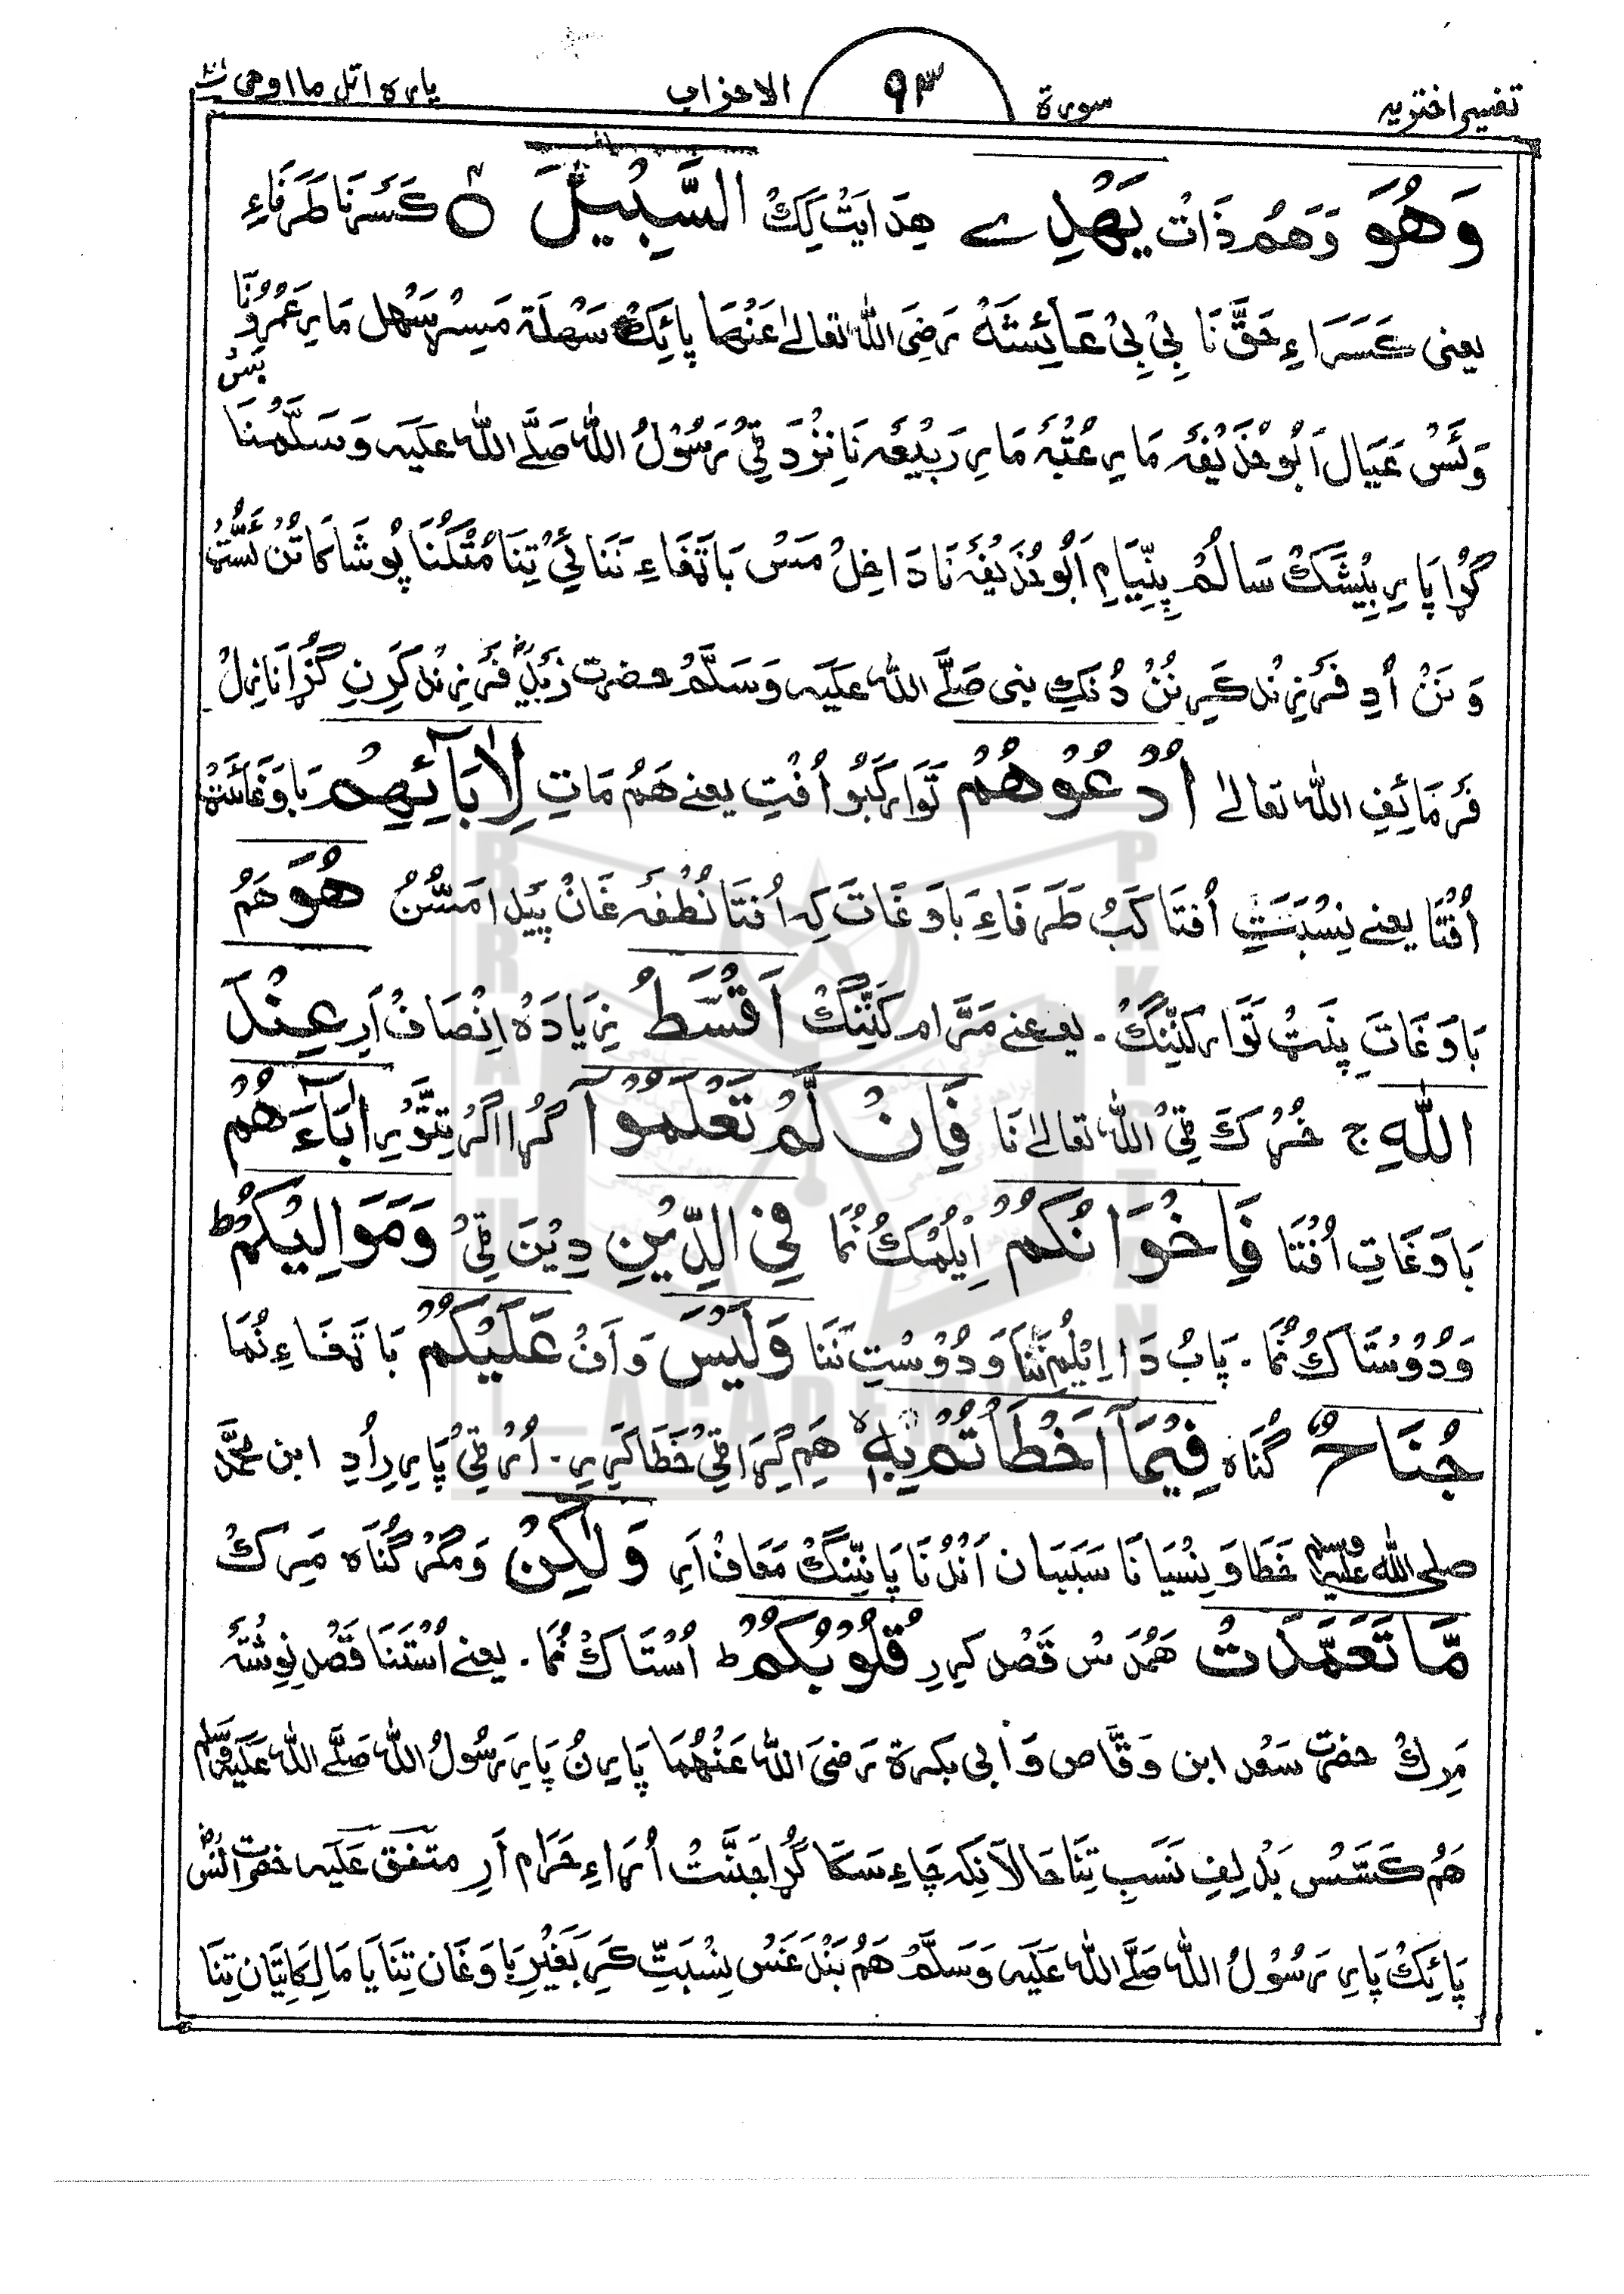 تفسیر اختریہ سورۃ ٩٣ الاحزاب پارہ اتل ما اوحی
وَهُوَ وَهَمُ ذَاتْ يَهْدِے هِدَايَتْ كِكْ السَّبِيْلَ ۝ كَسَرَنَا طَرَفَاءِ
يعنى كَسَرَاءِ حَقَّ نَا بِىْ بِىْ عَائِشَهْ رَضِىَ اللّٰه تعالےٰ عَنْهَا پائِكْ سَهْلَة مَسِڑ سَهْل مَارِ عَمْرُونَا بَسْ
وَئَسْ عَيَال اَبُو حُذَيْفَه مَارِ عُتْبَه مَارِ رَبِيْعَه نَا نِزْدَ قِىْ رَسُوْلُ اللّٰه صَلَّے اللّٰه عليه وَسَلَّمْنَا
گُڑا پَارِ بِيْشَكْ سَالُمْ پِنِّيَامِ اَبُو حُذَيْفَه نَا دَاخِلْ مَسْ بَاتَهَاءِ نَنَا ئِىْ تِنَا مُثْلَنَا پُوشَاكَاتُنْ نَسُّنْ
وَ نَنْ اُدِ فَرْزِنْد كَرِ نُنْ دُنَكِ نبى صَلَّے اللّٰه عليه وَسَلَّمْ حضرت زَيْدٌ فَرْزِنْد كَرِنِ گُڑا نَازِلْ
فَرمَائِفِ اللّٰه تعالےٰ اُدْعُوْهُمْ تَوَار كَبُو اُفْتِ يعنے هَمُ مَاتِ لِاٰبَآئِهِمْ بَاوَغَاتَتَهْ
اُفْتَا يعنے نِسْبَتِ اُفتَا كَبُ طَرَفَاءِ بَاوَغَاتَ كِه اُفتَا نُطْفَه غَانْ پَيْدا مَسُّنُ هُوَ هَمُ
بَاوَغَاتَ پِنَتْ تَوَار كَنِّنْگْ۔ يعنے مَرَّام كَنِّنْگْ اَقْسَطُ زِيَادَه اِنْصَافْ اَرِ عِنْدَ
اللّٰهِ ج خُڑكَ قِىْ اللّٰه تعالےٰ نَا فَاِنْ لَّمْ تَعْلَمُوْٓا گُڑا اگَرْ تِتَّوْرِ اٰبَآءَهُمْ
بَاوَغَاتِ اُفْتَا فَاِخْوَانُكُمْ اِيْلُمْكْ نُمَا فِى الدِّيْنِ دِيْنَ قِىْ وَمَوَالِيْكُمْ ط
وَدُوْسْتَاكْ نُمَا۔ پَابُ دَا اِيْلُمِ نَنَا وَدُوْسْتِ نَنَا وَلَيْسَ وَاَفْ عَلَيْكُمْ بَاتَهَاءِ نُمَا
جُنَاحٌ گُنَاه فِيْمَآ اَخْطَاْتُمْ بِهٖ هَم گِڑا قِىْ خَطَا كَرِيرِ۔ اُرْ قِىْ پَارِرِ اُدِ ابن محمّد
صلى اللّٰه عليه وسلم خَطَا وَ نِسْيَا نَا سَبَبَان اَنْدُنَا پَانِنْگْ مَعَافْ اَرِ وَلٰكِنْ وَمَگَرْ گُنَاه مَرِكْ
مَّا تَعَمَّدَتْ هَمُدَسْ قَصْد كَرِرِ قُلُوْبُكُمْ ط اُسْتَاكْ نُمَا۔ يعنے اُسْتَنَا قَصْد نِوِشْتَه
مَرِكْ حضرت سَعْد ابن وَقَّاص وَ اَبى بَكرة رَضِىَ اللّٰه عَنْهُمَا پَارِنُ پَارِ رَسُولُ اللّٰه صَلَّے اللّٰه عَلَيْه وسلم
هَمُ كَسَّسْ بَدْلِفِ نَسَبِ تِنَا حَالَانكِه چَاءِ سَكَا گُڑا جَنَّتْ اُرَاءِ حَرَام اَرِ متفق عَلَيه حضرت انسْ
پَائِكْ پَارِ رَسُوْلُ اللّٰه صَلَّے اللّٰه عَلَيَه وَسَلَّمْ هَمُ بَنْدَغَسْ نِسْبَتِّ كَرِ بَغَيْرِ بَاوَغَان تِنَا يَا مَالِكَاتِيَان تِنَا